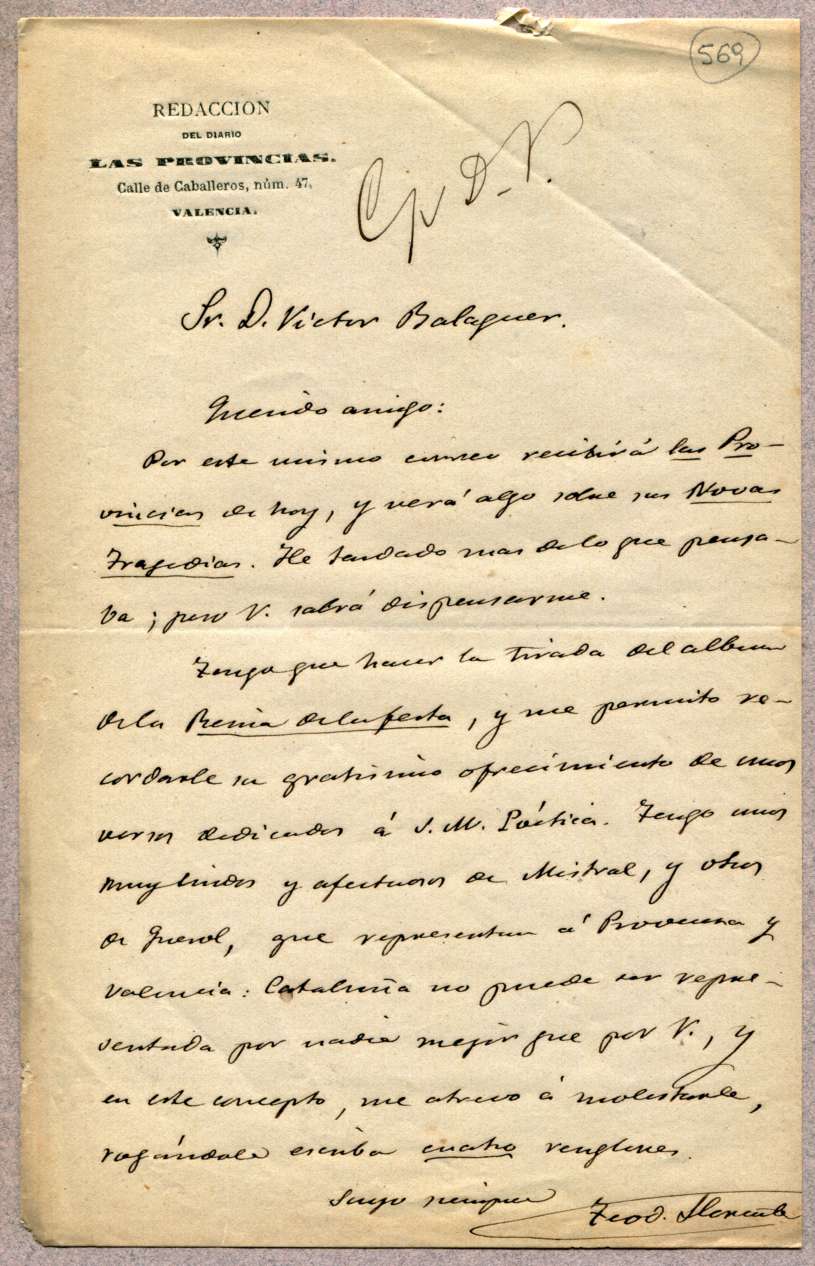 569
REDACCION
DEL DIARIO
LAS PROVINCIAS.
Calle de Caballeros, núm. 47,
VALENCIA.
Sr. D. Victor Balaguer.
Querido amigo:
Por este mismo correo recibirá las Pro-
vincias de hoy, y verá algo sobre sus Novas
Tragedias. He tardado mas de lo que pensa-
ba; pero V. sabrá dispensarme.
Tengo que hacer la tirada del album
de la Reina de la festa, y me permito re-
cordarle su gratisimo ofrecimiento de unos
versos dedicados á S. M. Poética. Tengo unos
muy lindos y afectuosos de Mistral, y otros
de Querol, que representan á Provenza y
Valencia: Cataluña no puede ser repre-
sentada por nadie mejor que por V., y
en este concepto, me atrevo á molestarle,
rogándole escriba cuatro renglones.
Suyo siempre
Teod. Llorente